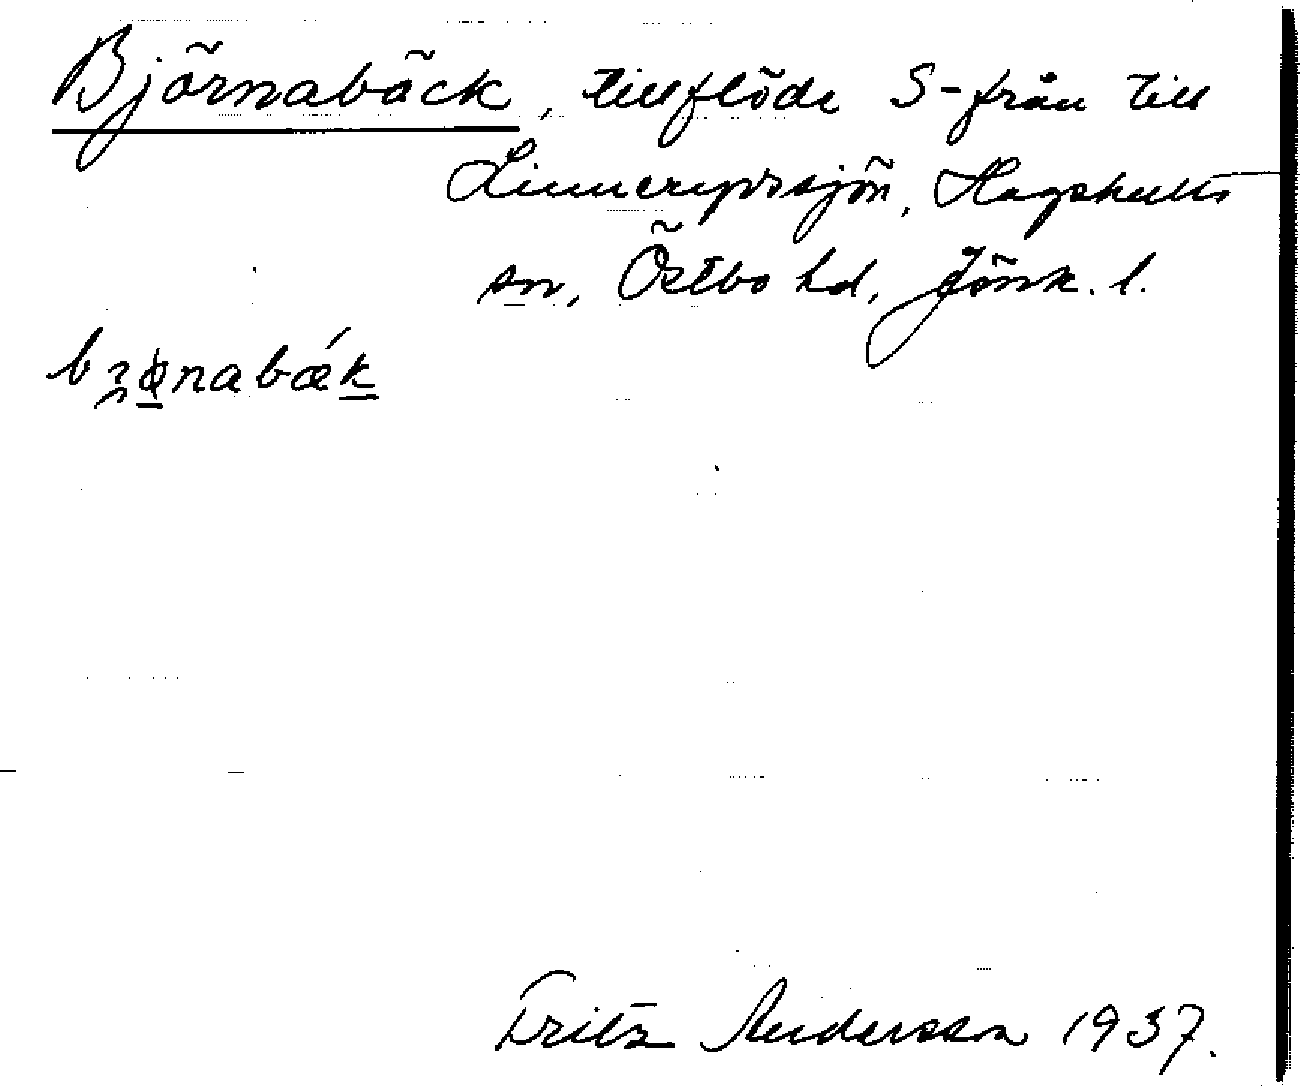 Björnabäck, tillflöde S-från till
Linnerydssjön, Hagshults
sn, Östbo hd, Jönk. l.
Fritz Andersson 1937.